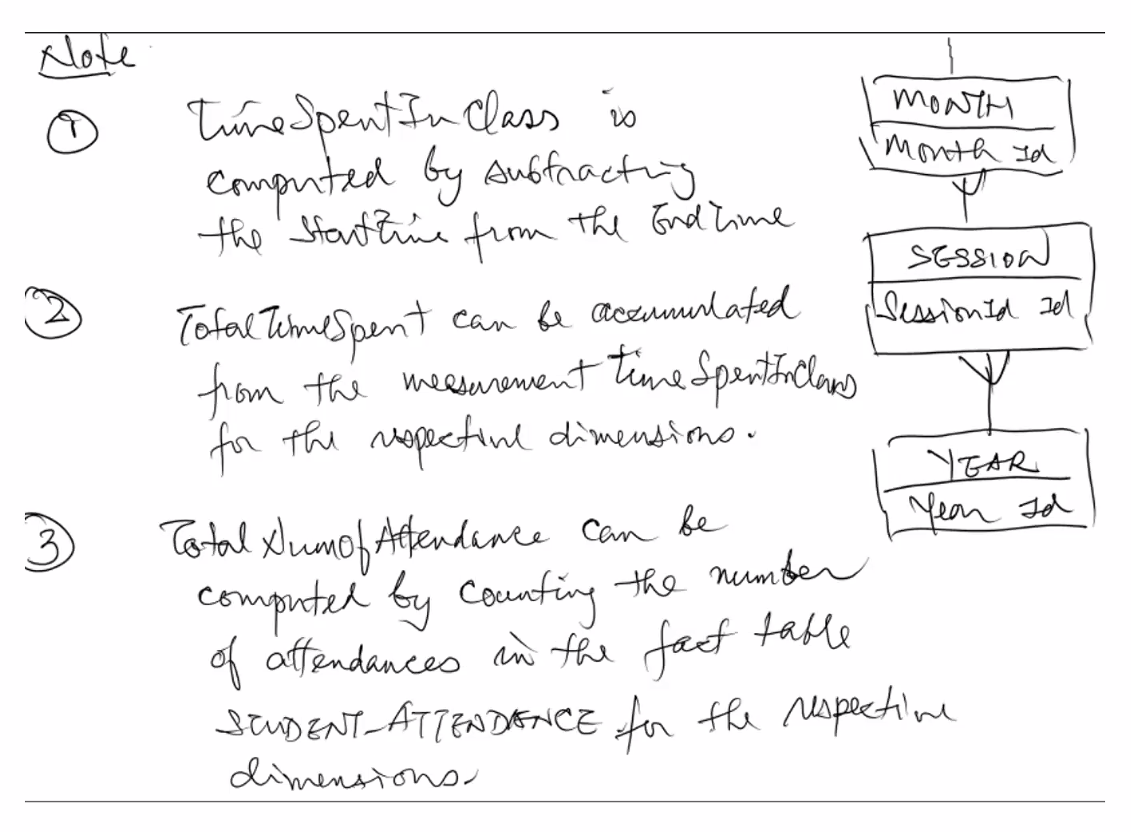 Note
① TimeSpentInClass is
computed by subtracting
the StartTime from the EndTime
② TotalTimeSpent can be accumulated
from the measurement TimeSpentInClass
for the respective dimensions.
③ TotalNumOfAttendance can be
computed by counting the number
of attendances in the fact table
STUDENT_ATTENDENCE for the respective
dimensions.
MONTH
Month Id
SESSION
SessionId Id
YEAR
Year Id